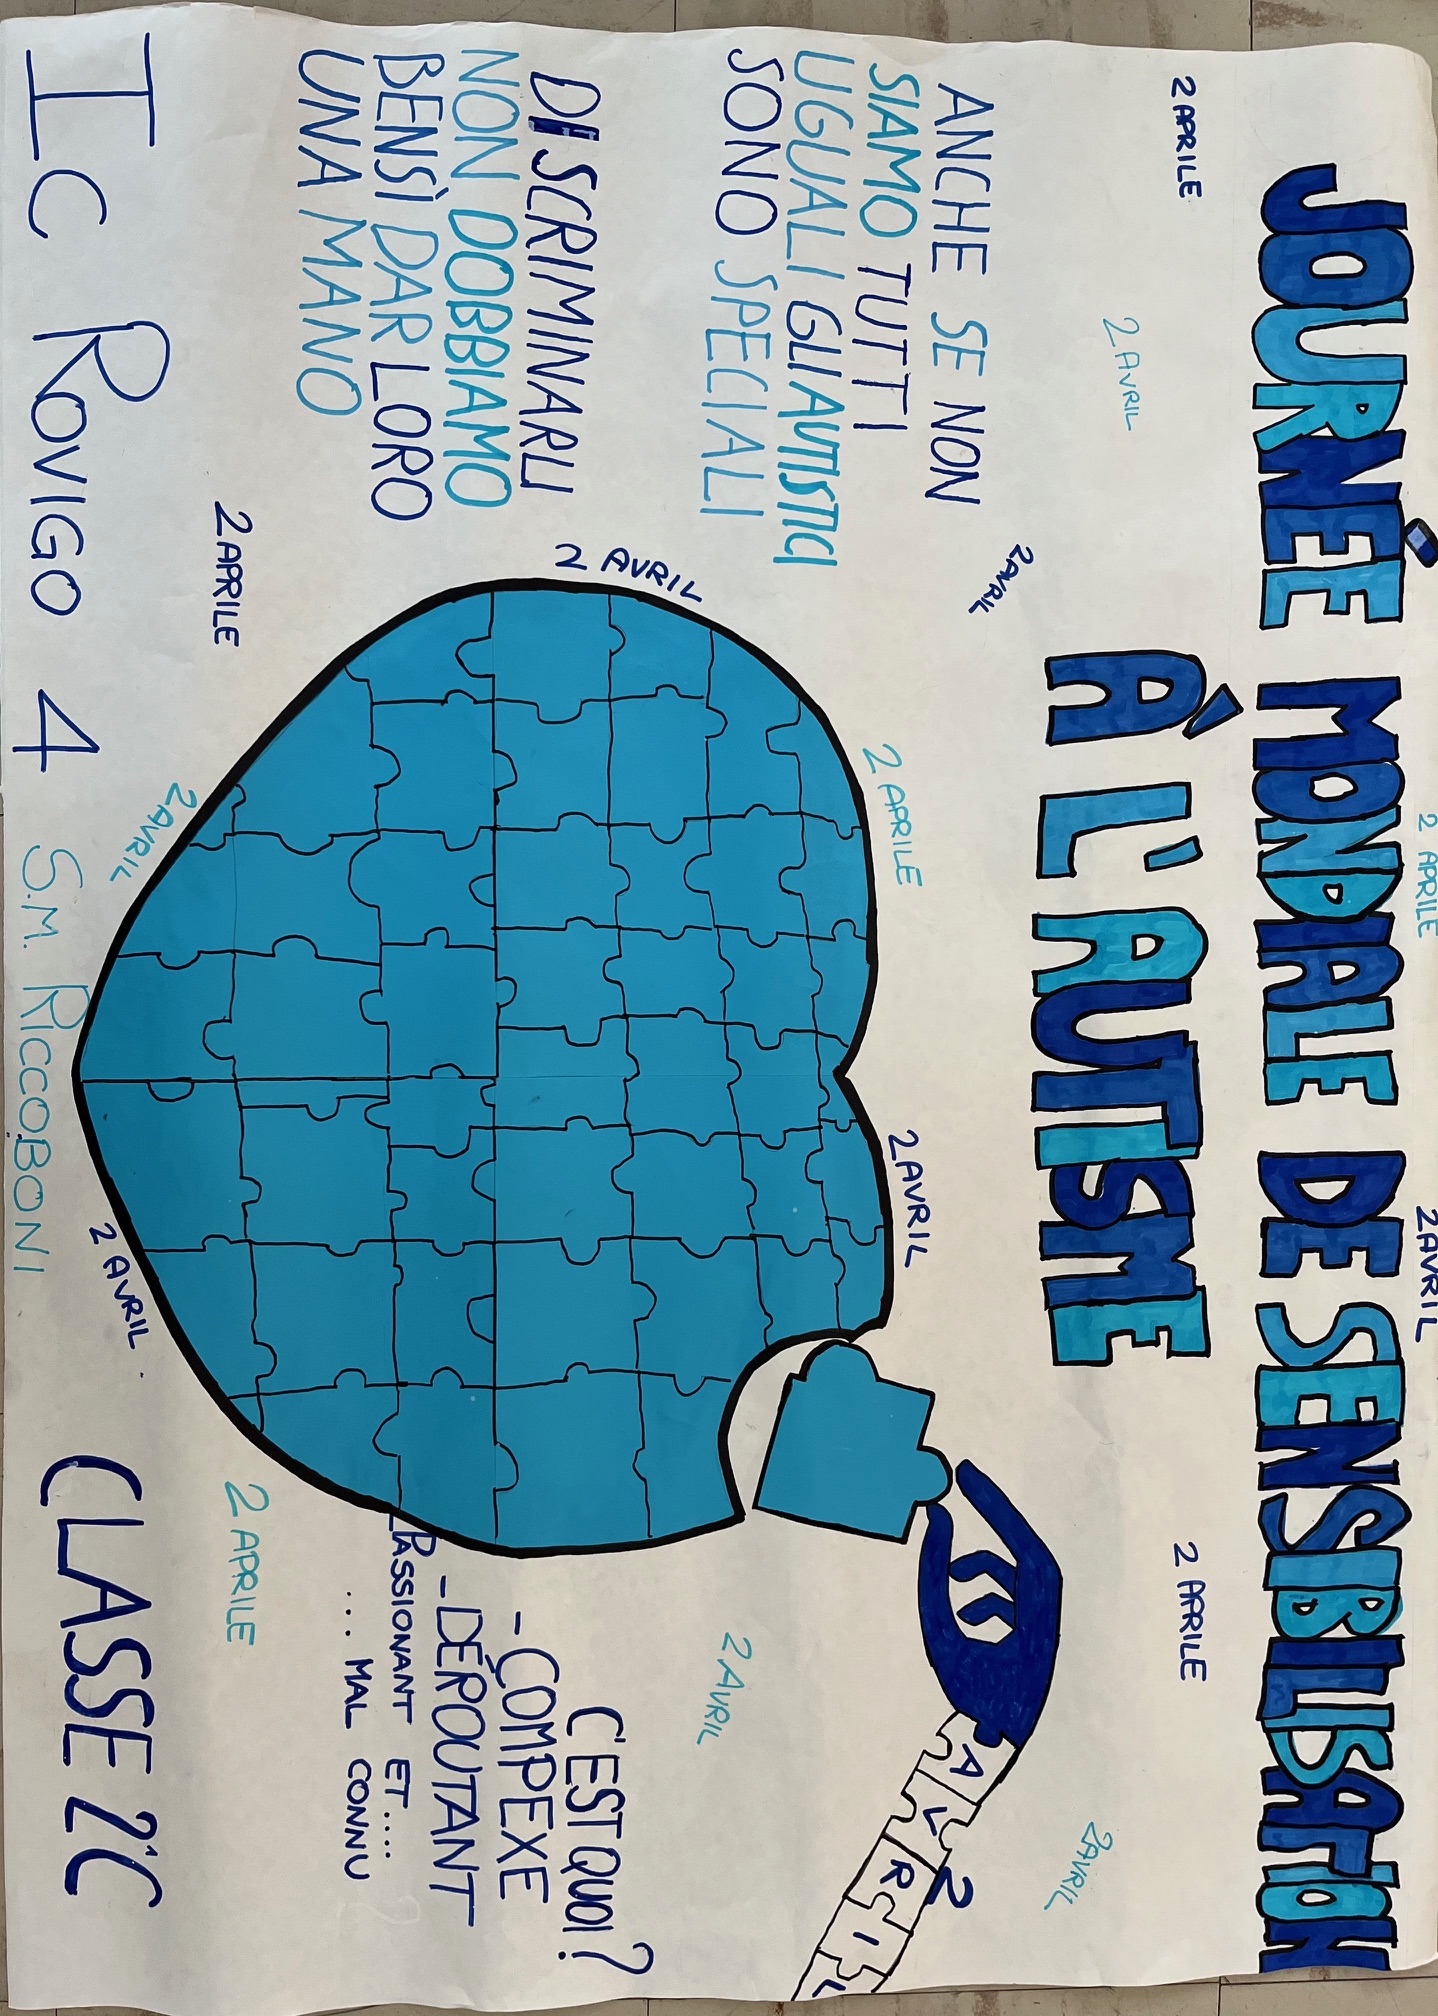 2 APRILE
2 AVRIL
JOURNÉE MONDIALE DE SENSIBILISATION
À L'AUTISME
2 APRILE
2 AVRIL
2 APRILE
2 AVRIL
2 AVRIL
ANCHE SE NON
SIAMO TUTTI
UGUALI GLI AUTISTICI
SONO SPECIALI
2 APRILE
2 AVRIL
2 AVRIL
AVRIL
2
DISCRIMINARLI
NON DOBBIAMO
BENSÌ DAR LORO
UNA MANO
2 AVRIL
2 AVRIL
C'EST QUOI?
- COMPEXE
- DÉROUTANT
- PASSIONANT ET.....
... MAL CONNU
2 APRILE
2 AVRIL
2 AVRIL
2 APRILE
IC ROVIGO 4 S.M. RICCOBONI CLASSE 2°C